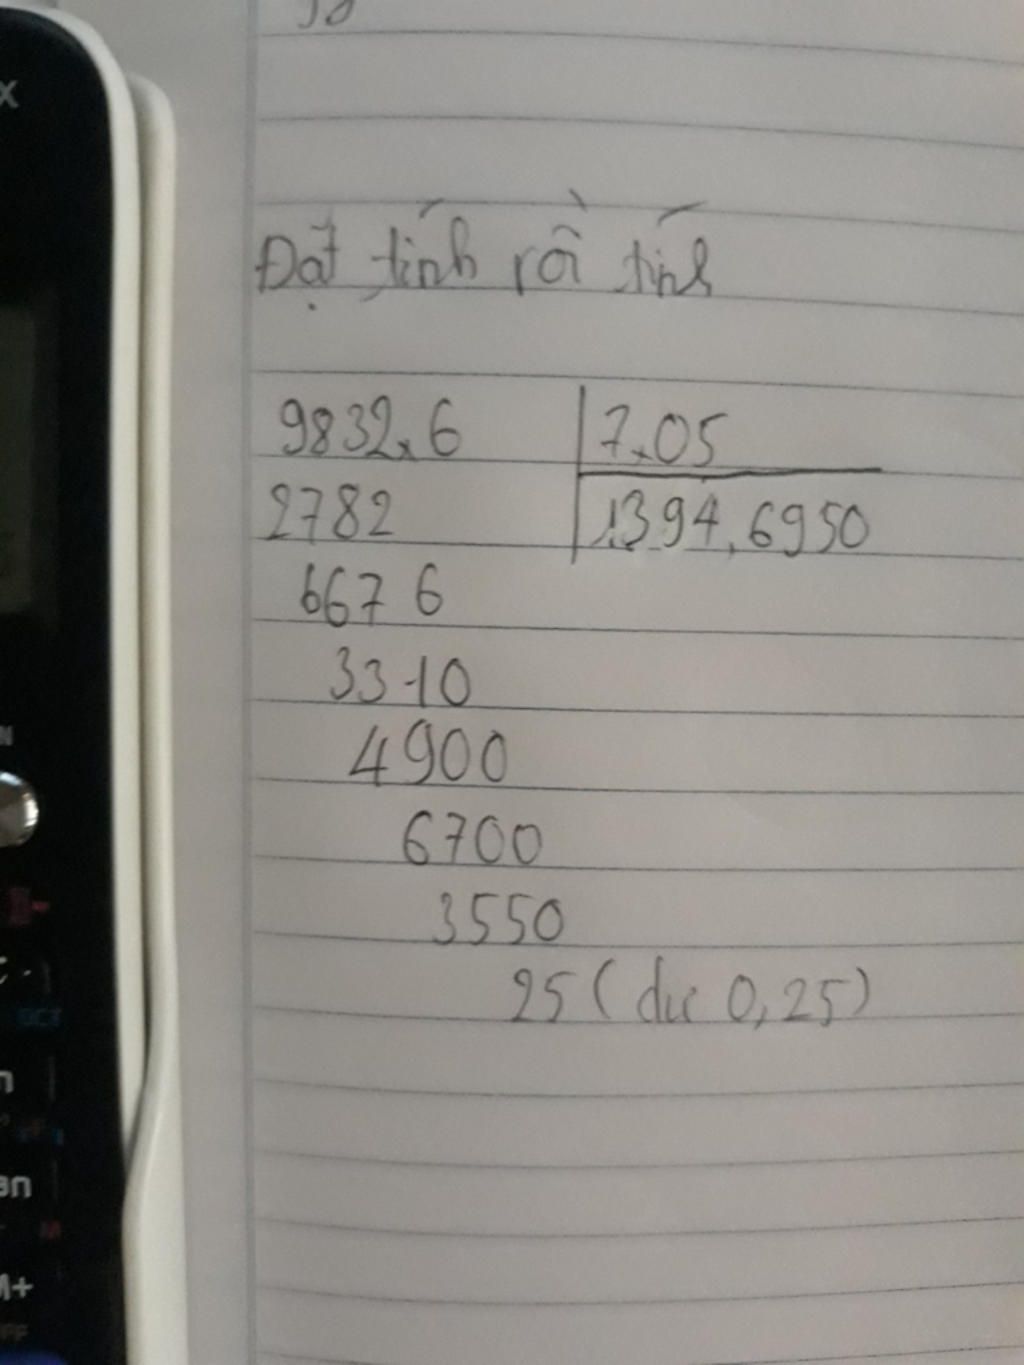 Đặt tính rồi tính
9832,6 7,05
2782 1394,6950
667 6
33 10
4900
6700
3550
25 (dư 0,25)
X
N
OCT
M
M+